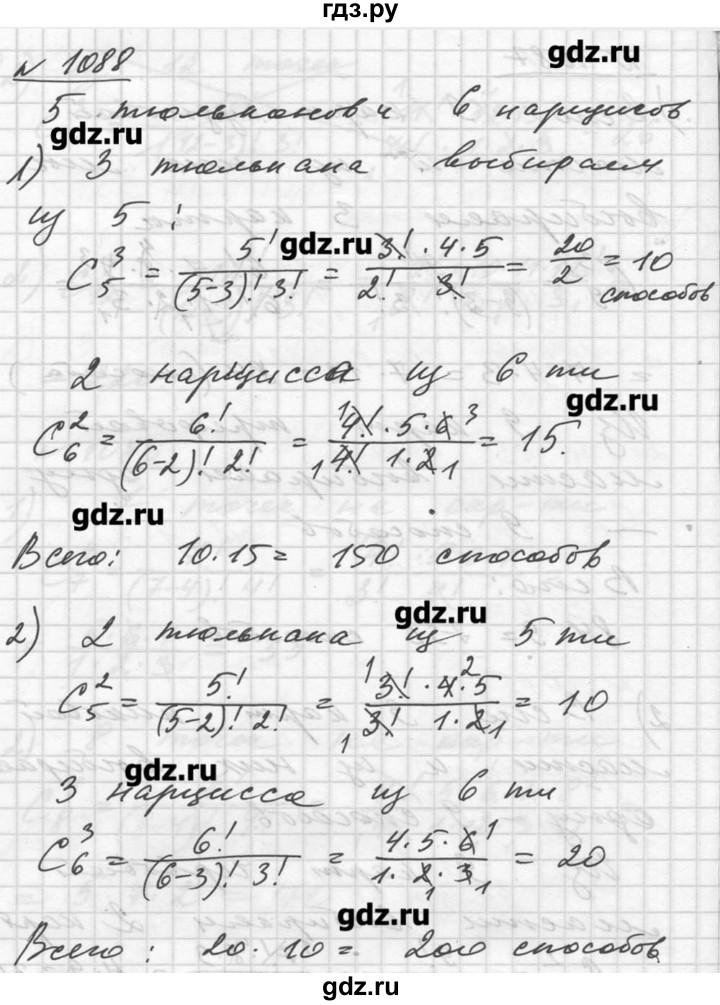 гдз.ру
N 1088
gdz.ru
5 тюльпанов и 6 нарцисов
gdz.ru
1) 3 тюльпана выбираем
из 5!
gdz.ru
C_5^3 = 5!/((5-3)! 3!) = (3! · 4 · 5)/(2! 3!) = 20/2 = 10
способов
2 нарцисса из 6 ти
gdz.ru
C_6^2 = 6!/((6-2)! 2!) = (4! · 5 · 6)/(4! 1 · 2) = 15.
gdz.ru
Всего: 10·15 = 150 способов
gdz.ru
2) 2 тюльпана из 5 ти
C_5^2 = 5!/((5-2)! 2!) = (3! · 4 · 5)/(3! 1 · 2) = 10
gdz.ru
3 нарцисса из 6 ти
C_6^3 = 6!/((6-3)! 3!) = (4 · 5 · 6)/(1 · 2 · 3) = 20
gdz.ru
Всего: 20 · 10 = 200 способов
gdz.ru